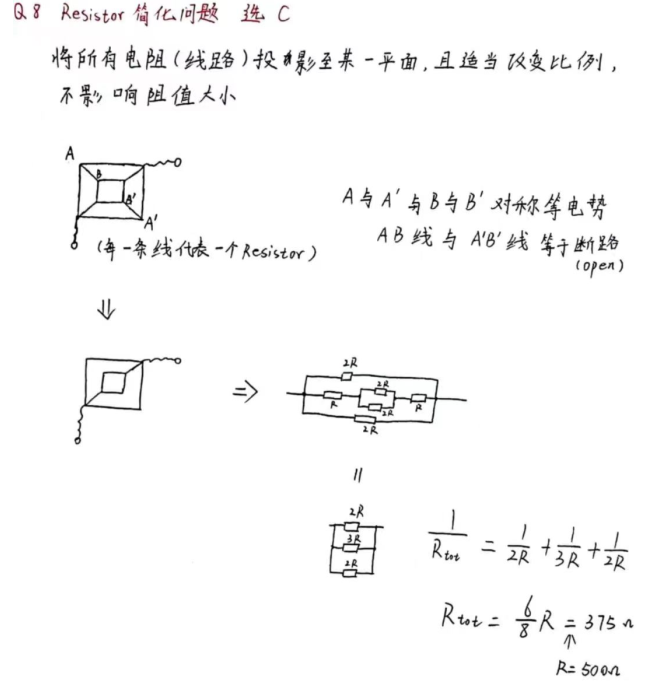 Q8 Resistor 简化问题 选 C
将所有电阻(线路)投影至某一平面,且适当改变比例,
不影响阻值大小
A
B
B'
A'
(每一条线代表一个Resistor)
A与A'与B与B'对称等电势
AB线与A'B'线等于断路
(open)
⇓
⇒
2R
R
2R
2R
R
2R
=
2R
3R
2R
1/R_tot = 1/2R + 1/3R + 1/2R
R_tot = 6/8 R = 375Ω
↑
R=500Ω